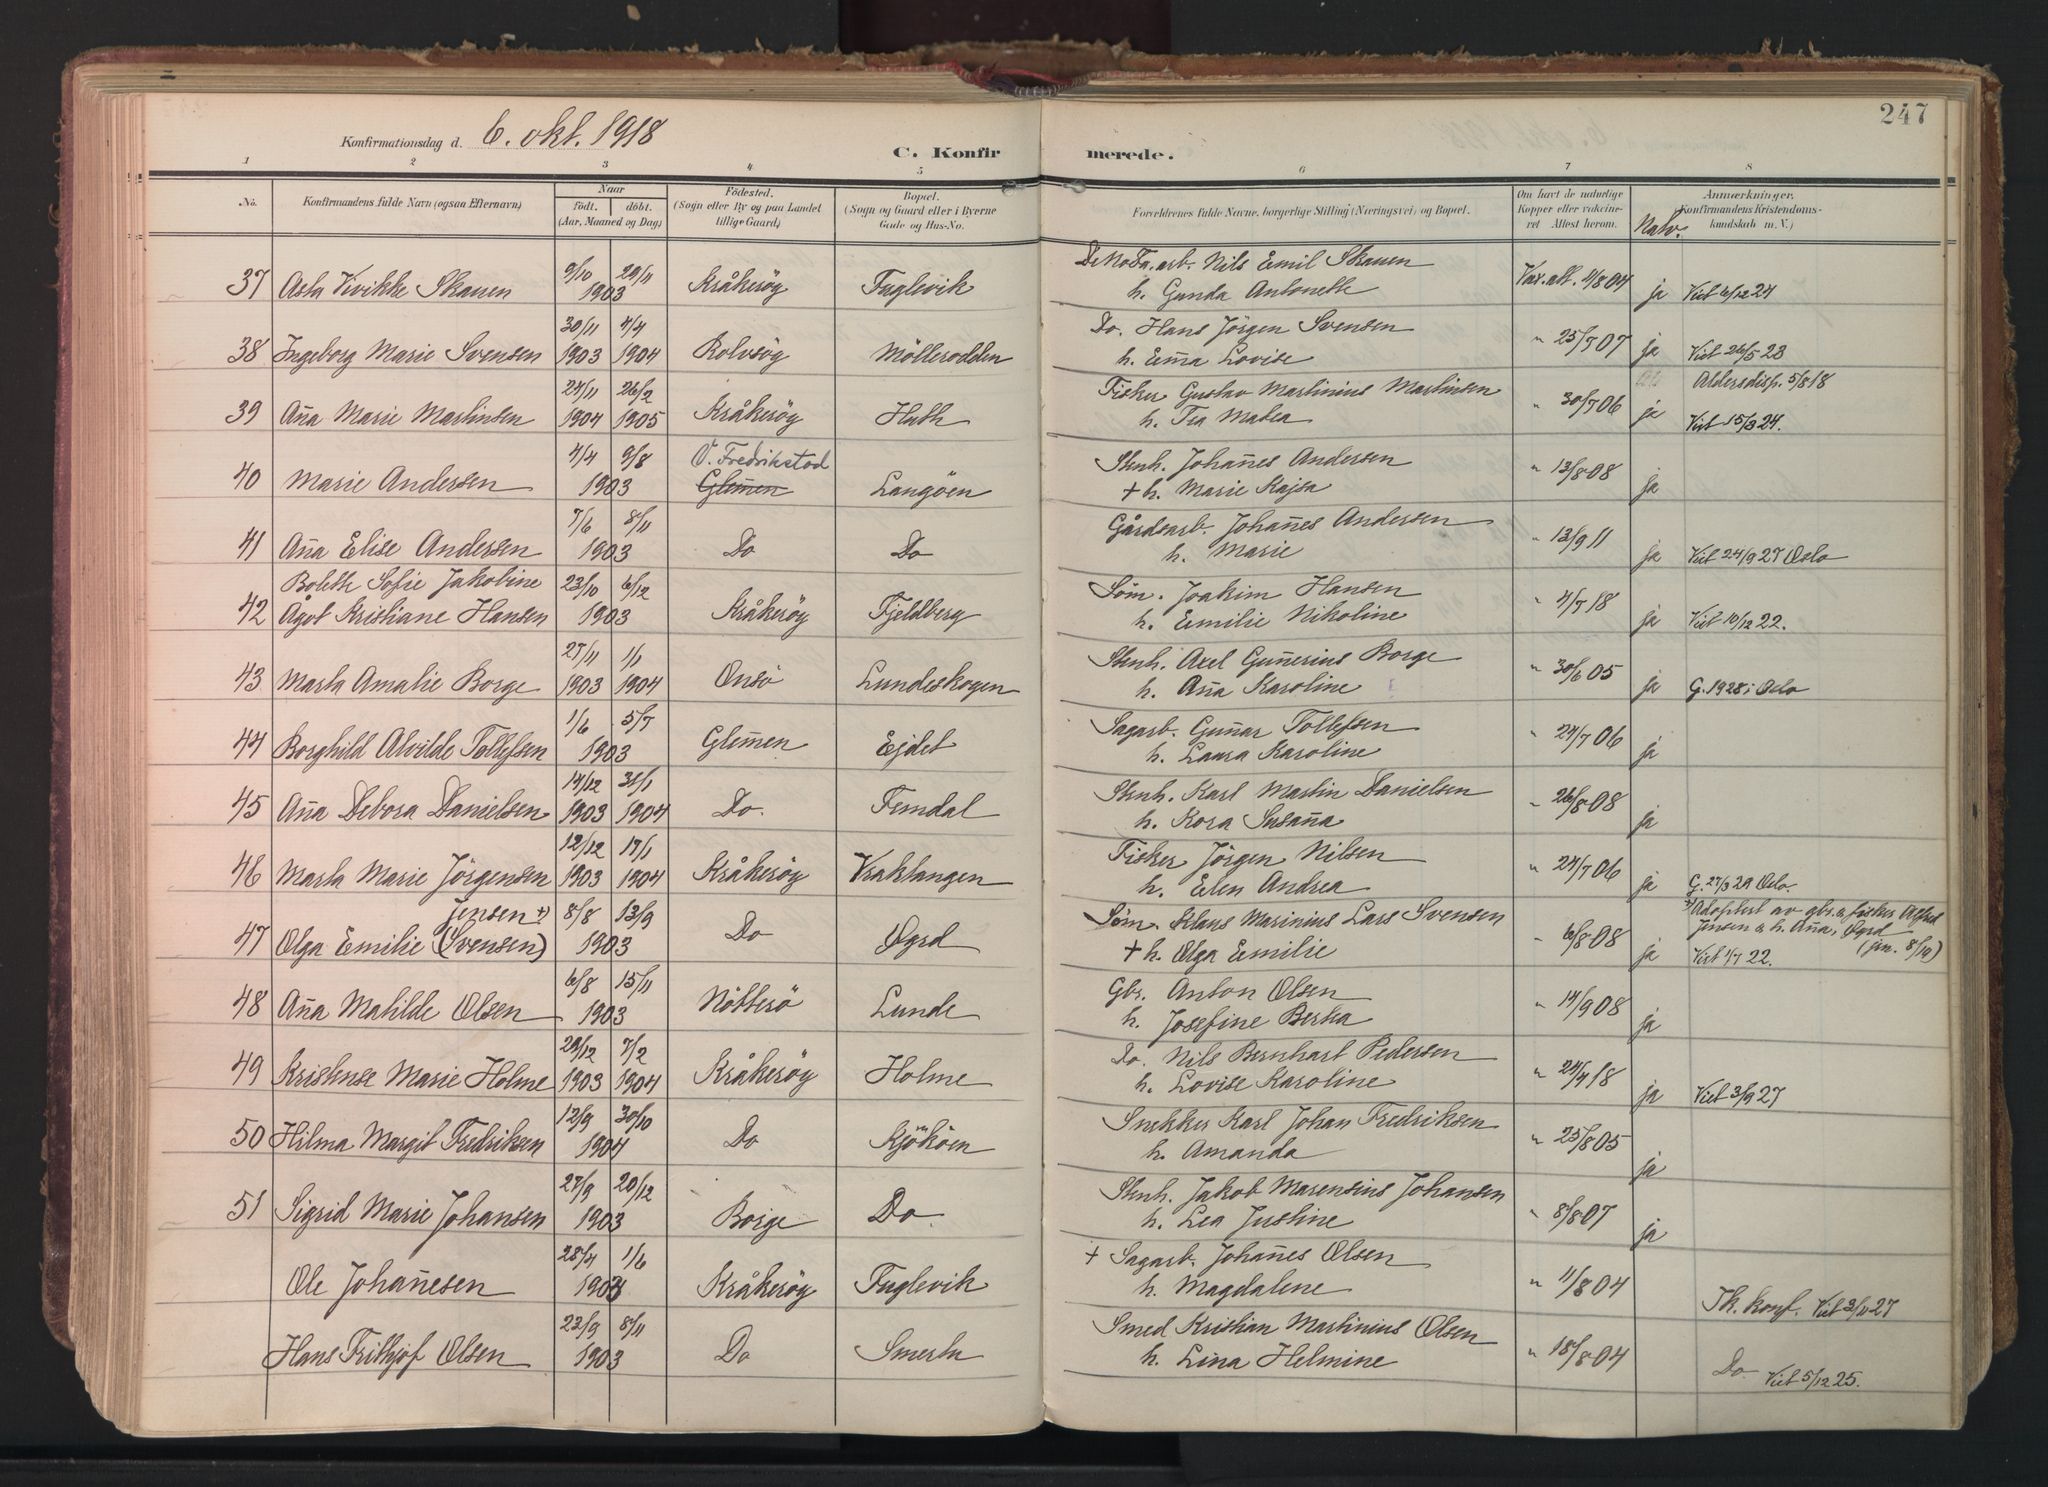 247
Konfirmationsdag d. 6. okt. 1918
C. Konfirmerede.
1 2 3 4 5 6 7 8
No. Konfirmandens fulde Navn (ogsaa Efternavn) Naar født. døbt. (Aar, Maaned og Dag) Födested. (Sogn eller By og paa Landet tillige Gaard) Bopæl. (Sogn og Gaard eller i Byerne Gade og Hus-No. Forældrenes fulde Navne, borgerlige Stilling (Næringsvei) og Bopæl. Om havt de naturlige Kopper eller vakcineret Attest herom. Natv. Anmærkninger. (Konfirmandens Kristendomskundskab m. V.)
37 Asla Vivikke Skauen 9/10 29/11 1903 Kråkeröy Fuglevik DeNoFa. arb. Nils Emil Skauen
h. Gunda Antonette Vax. att. 11/8 04 ja Viet 6/12 24
38 Ingeborg Marie Svensen 30/11 1903 4/4 1904 Rolvsöy Möllerodden Do. Hans Jörgen Svensen
h. Em̄a Lovise " 25/7 07 ja Viet 26/5 23
39 An̄a Marie Martinsen 24/11 1904 26/2 1905 Kråkeröy Huth Fisker Gustav Martinius Martinsen
h. Tea Matea " 30/7 06 ja Aldersdisp. 5/8 18
Viet 15/3 24.
40 Marie Andersen 4/4 9/8 1903 V. Fredrikstad
Glem̄en Langöen Stenh. Johan̄es Andersen
+ h. Marie Kajsa " 13/8 08 ja
41 An̄a Elise Andersen 7/6 8/11 1903 Do Do Gårdsarb. Johan̄es Andersen
h. Marie " 13/9 11 ja Viet 24/9 27 Oslo
42 Bolette Sofie Jakobine
Ågot Kristiane Hansen 23/10 6/12 1903 Kråkeröy Fjeldberg Söm. Joakim Hansen
h. Emilie Nikoline " 4/7 18 ja Viet 10/12 22.
43 Marta Amalie Borge 27/11 1903 1/1 1904 Onsö Lundeskogen Stenh. Axel Gun̄erius Borge
h. An̄a Karoline " 30/6 05 ja G. 1928 i Oslo
44 Borghild Alvilde Tollefsen 1/6 5/7 1903 Glem̄en Ejdet Sagarb. Gun̄ar Tollefsen
h. Laura Karoline " 24/7 06 ja
45 An̄a Debora Danielsen 14/12 1903 31/1 1904 Do. Femdal Stenh. Karl Martin Danielsen
h. Kora Susan̄a " 26/8 08 ja
46 Marta Marie Jörgensen 12/12 1903 17/1 1904 Kråkeröy Vraklangen Fisker Jörgen Nilsen
h. Elen Andrea " 24/7 06 ja G. 27/3 29 Oslo
47 Jensen +)
Olga Emilie (Svensen) 8/8 13/9 1903 Do Øgrd Söm. Klaus Marinius Lars Svensen
+ h. Olga Emilie " 6/8 08 ja +) Adoptert av gbr. & fisker Alfred
Jensen & h. An̄a, Øgrd
(jvn. 8/19)
Viet 1/7 22.
48 An̄a Matilde Olsen 6/8 15/11 1903 Nötterö Lunde Gbr. Anton Olsen
h. Josefine Berta " 14/9 08 ja
49 Kristense Marie Holme 29/12 1903 7/2 1904 Kråkeröy Holme Do. Nils Bernhart Pedersen
h. Lovise Karoline " 24/4 18 ja Viet 3/9 27
50 Hilma Margit Fredriksen 12/9 30/10 1904 Do Kjököen Snekker Karl Johan Fredriksen
h. Amanda " 25/8 05 ja
51 Sigrid Marie Johansen 27/9 20/12 1903 Borge Do Stenh. Jakob Marensius Johansen
h. Lea Justine " 8/8 07 ja
Ole Johan̄esen 28/4 1/6 1903 Kråkeröy Fuglevik + Sagarb. Johan̄es Olsen
h. Magdalene " 11/8 04 Tk. konf. Viet 3/11 27
Hans Frithjof Olsen 23/9 8/11 1903 Do Smertu Smed Kristian Martinius Olsen
h. Lina Helmine " 18/8 04 Do. Viet 5/12 25.